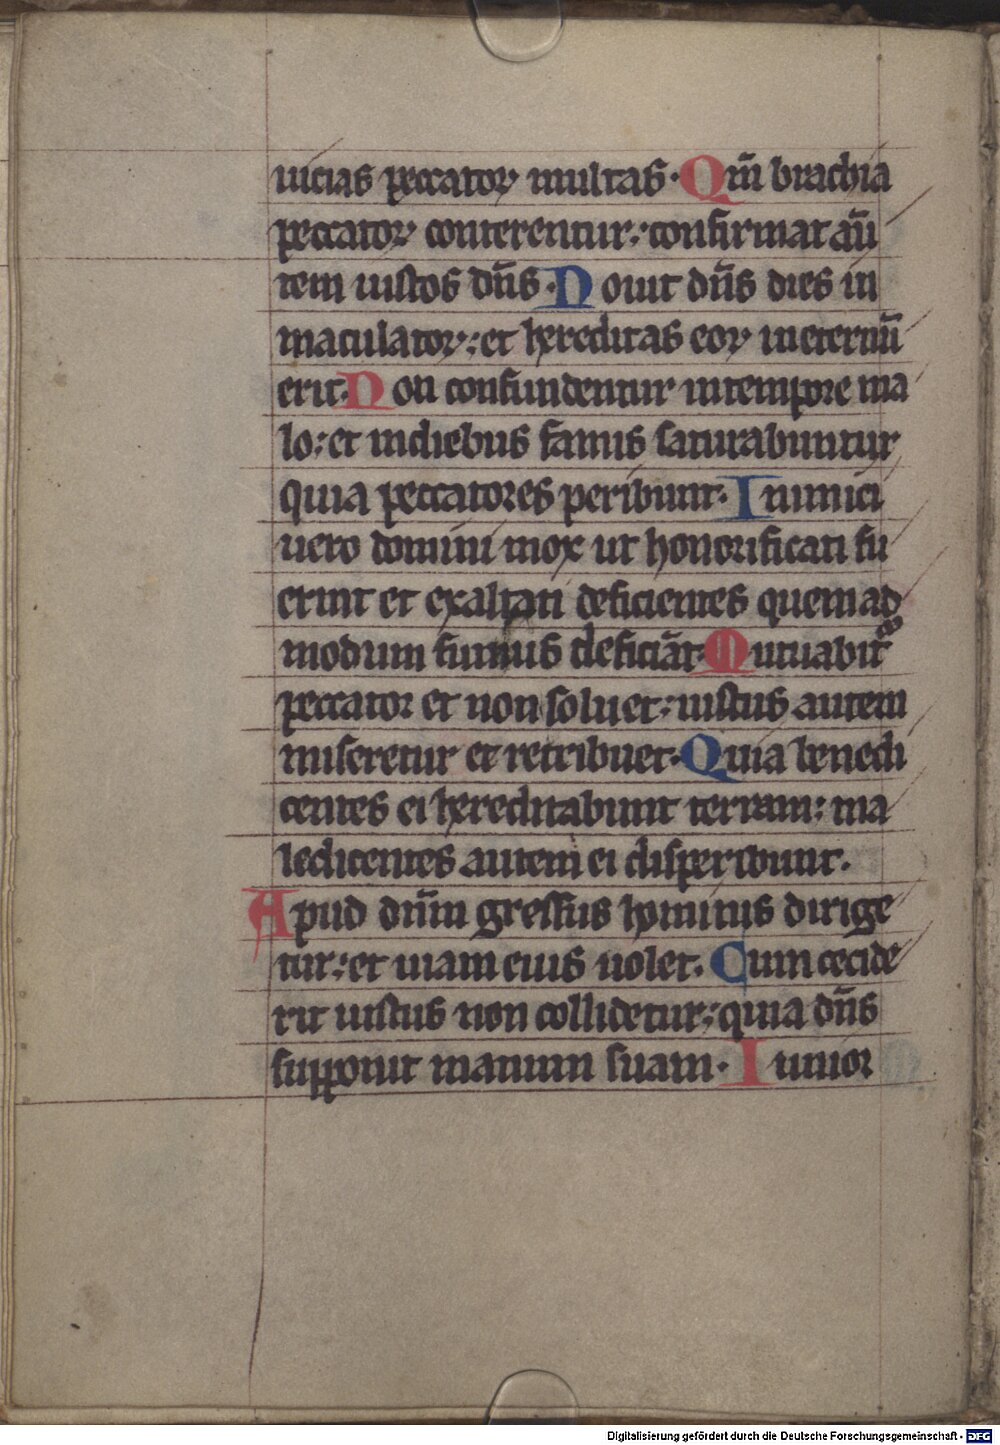 uicias peccatoꝝ multas· Qm̄ brachia
peccatoꝝ conterentur: confirmat aū
tem iustos dn̄s· Nouit dn̄s dies in
maculatoꝝ: et hereditas eoꝝ ineternū
erit· Non confundentur intempore ma
lo: et indiebus famis saturabuntur
quia peccatores peribunt· Inimici
uero domini mox ut honorificati fu
erint et exaltati deficientes quemad
modum fumus deficiāt· Mutuabit᷑
peccator et non soluet: iustus autem
miseretur et retribuet· Quia benedi
centes ei hereditabunt terram: ma
ledicentes autem ei disperibunt·
Apud dn̄m gressus hominis dirige
tur: et uiam eius uolet· Cum cecide
rit iustus non collidetur: quia dn̄s
supponit manum suam· Iunior
Digitalisierung gefördert durch die Deutsche Forschungsgemeinschaft - DFG